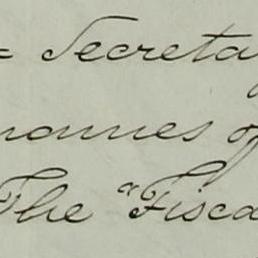 = Secreta
nannes of
The "Fisca